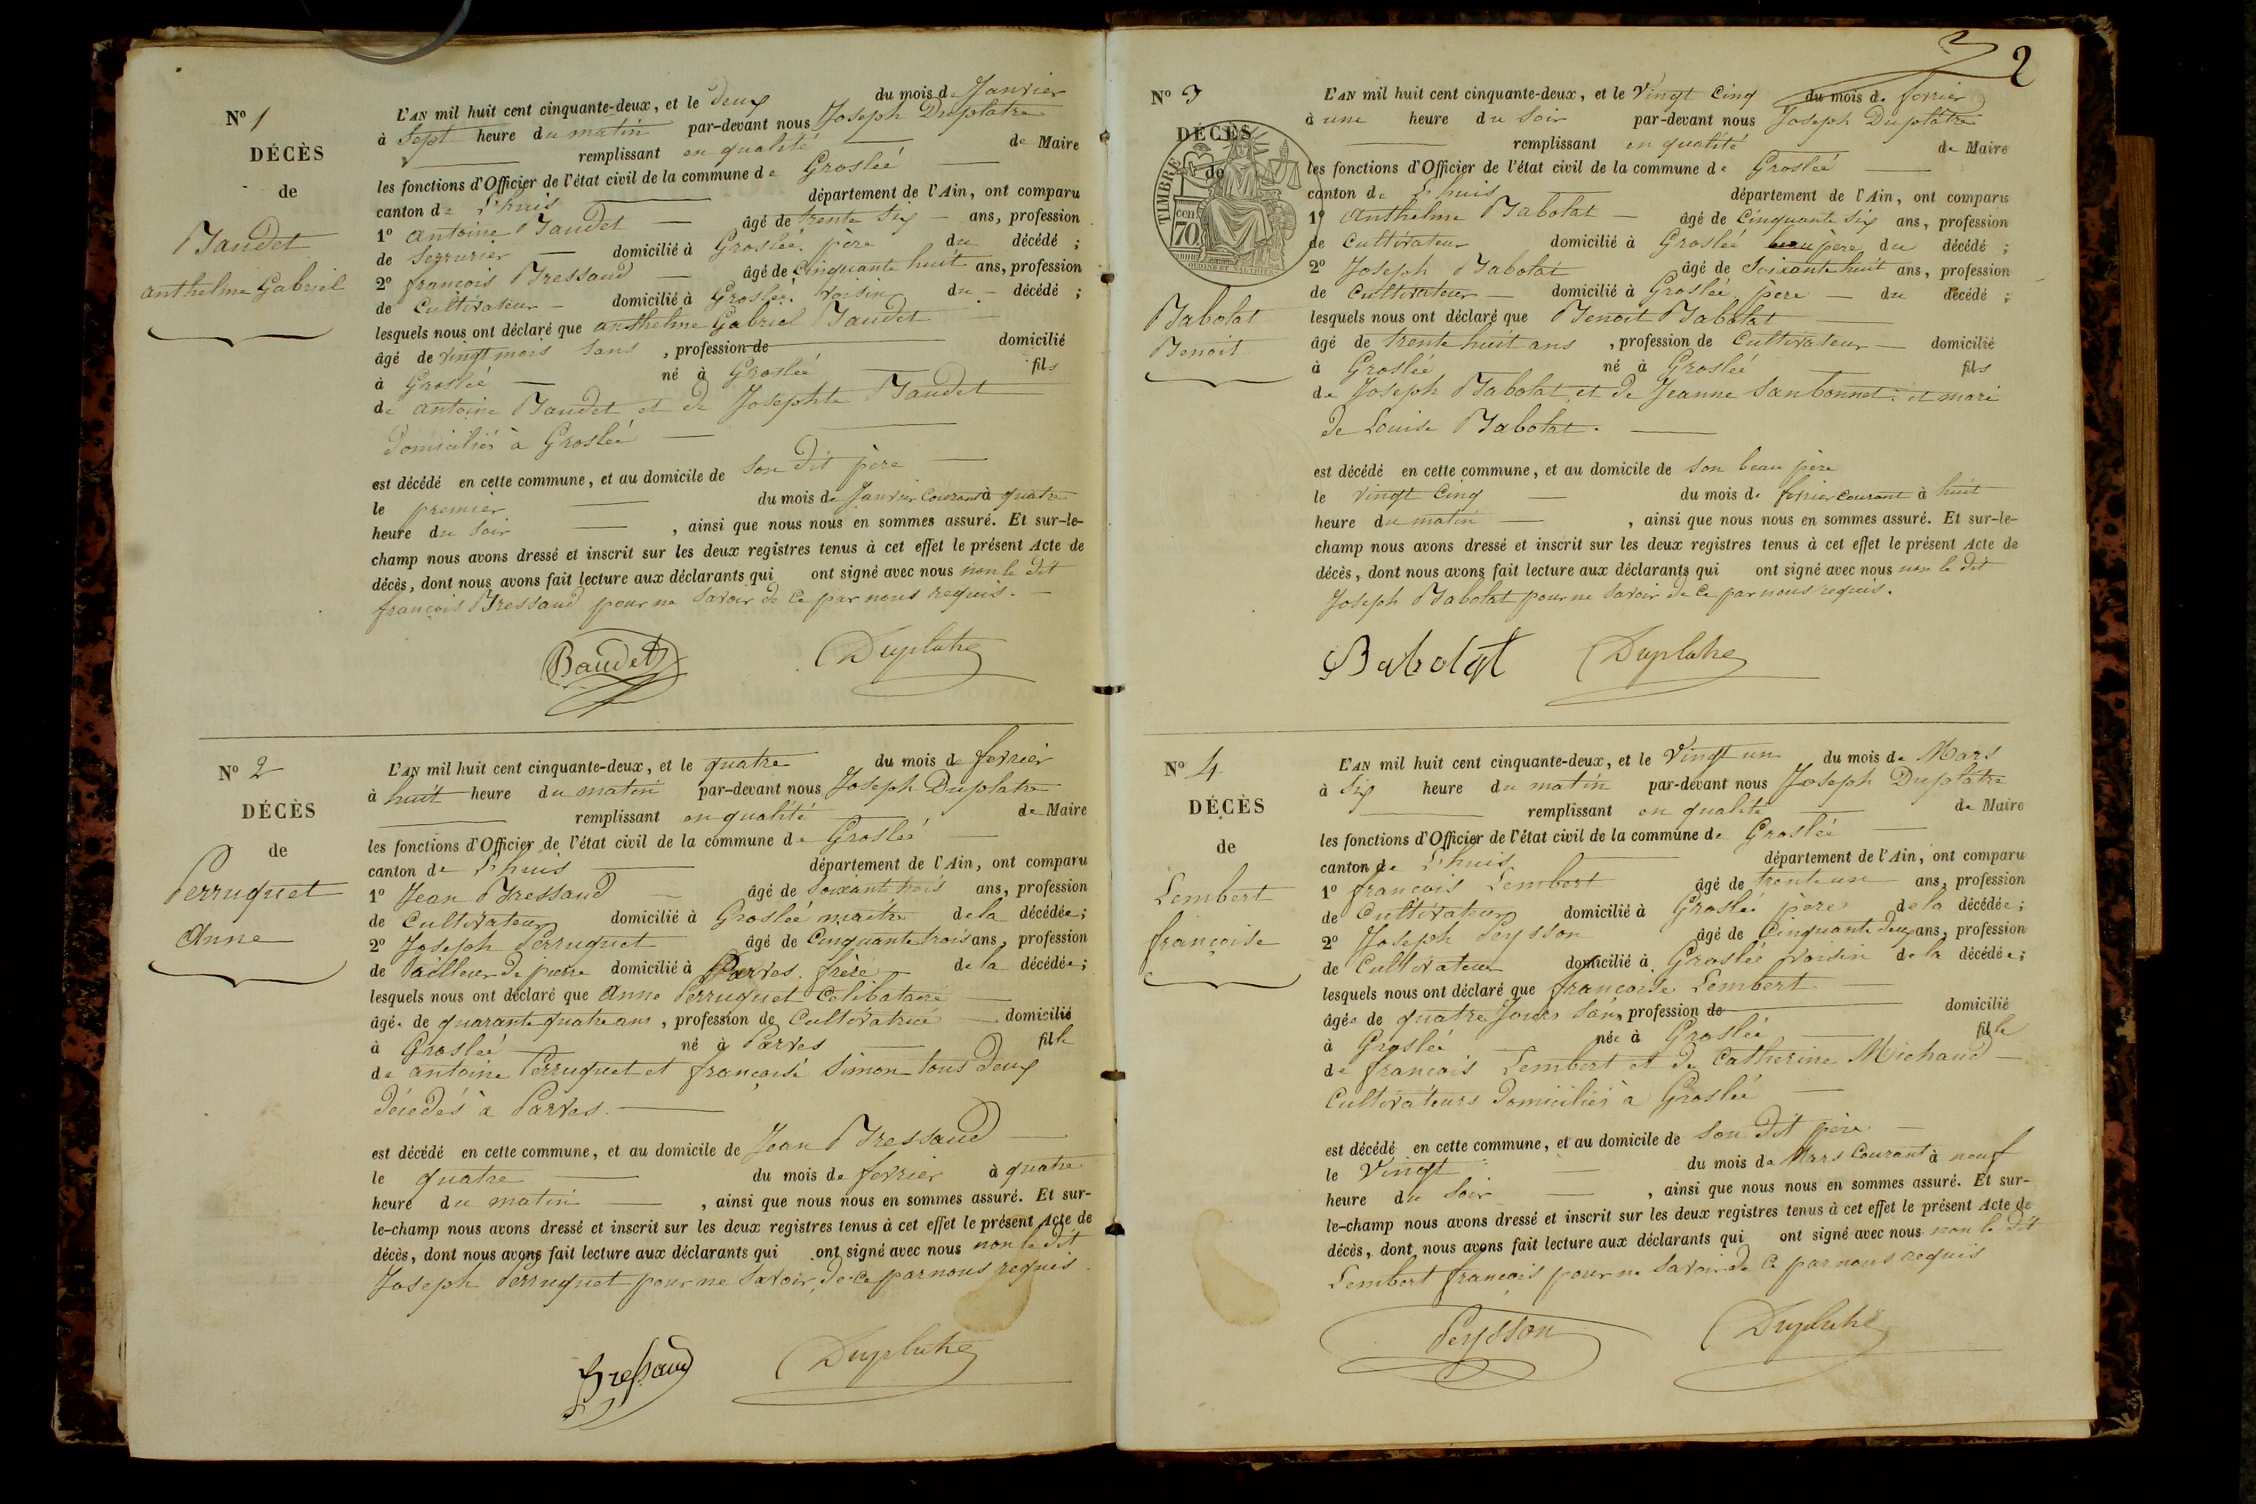 N° 1
DÉCÈS
de
Baudet
Anthelme Gabriel
L'AN mil huit cent cinquante-deux, et le deux du mois de Janvier
à Sept heure du matin par-devant nous Joseph Duplatre
remplissant en qualité de Maire
les fonctions d'Officier de l'état civil de la commune de Groslée
canton de L'huis département de l'Ain, ont comparu
1° Antoine Baudet âgé de trente six ans, profession
de Serrurier domicilié à Groslée père du décédé ;
2° françois Bressaud âgé de Cinquante huit ans, profession
de Cultivateur domicilié à Groslée voisin du décédé ;
lesquels nous ont déclaré que anthelme Gabriel Baudet
âgé de vingt mois sans , profession de domicilié
à Groslée né à Groslée fils
de antoine Baudet et de Josephte Baudet
domiciliés à Groslée
est décédé en cette commune, et au domicile de son dit père
le premier du mois de Janvier courant à quatre
heure du soir , ainsi que nous nous en sommes assuré. Et sur-le-
champ nous avons dressé et inscrit sur les deux registres tenus à cet effet le présent Acte de
décès, dont nous avons fait lecture aux déclarants qui ont signé avec nous non le dit
françois Bressaud pour ne savoir de ce par nous requis.
Baudet Duplatre
N° 2
DÉCÈS
de
Perruquet
Anne
L'AN mil huit cent cinquante-deux, et le quatre du mois de fevrier
à huit heure du matin par-devant nous Joseph Duplatre
remplissant en qualité de Maire
les fonctions d'Officier de l'état civil de la commune de Groslée
canton de L'huis département de l'Ain, ont comparu
1° Jean Bressaud âgé de soixante trois ans, profession
de Cultivateur domicilié à Groslée maitre de la décédée ;
2° Joseph Perruquet âgé de Cinquante trois ans, profession
de tailleur de pierre domicilié à Parves frère de la décédée ;
lesquels nous ont déclaré que Anne Perruquet Celibataire
âgée de quarante quatre ans , profession de Cultivatrice domicilié
à Groslée né à Parves fille
de antoine Perruquet et françoise Simon tous deux
décedés à Parves.
est décédé en cette commune, et au domicile de Jean Bressaud
le quatre du mois de fevrier à quatre
heure du matin , ainsi que nous nous en sommes assuré. Et sur-
le-champ nous avons dressé et inscrit sur les deux registres tenus à cet effet le présent Acte de
décès, dont nous avons fait lecture aux déclarants qui ont signé avec nous non le dit
Joseph Perruquet pour ne savoir de ce par nous requis.
Bressaud Duplatre
2
N° 3
DÉCÈS
de
TIMBRE
cen
70
Babolat
Benoit
L'AN mil huit cent cinquante-deux, et le Vingt Cinq du mois de fevrier
à une heure du soir par-devant nous Joseph Duplatre
remplissant en qualité de Maire
les fonctions d'Officier de l'état civil de la commune de Groslée
canton de L'huis département de l'Ain, ont comparu
1° Anthelme Babolat âgé de Cinquante Six ans, profession
de Cultivateur domicilié à Groslée beau père du décédé ;
2° Joseph Babolat âgé de Soixante huit ans, profession
de Cultivateur domicilié à Groslée père du décédé ;
lesquels nous ont déclaré que Benoit Babolat
âgé de trente huit ans , profession de Cultivateur domicilié
à Groslée né à Groslée fils
de Joseph Babolat et de Jeanne Sanbonnet et mari
de Louise Babolat.
est décédé en cette commune, et au domicile de son beau père
le vingt Cinq du mois de fevrier courant à huit
heure du matin , ainsi que nous nous en sommes assuré. Et sur-le-
champ nous avons dressé et inscrit sur les deux registres tenus à cet effet le présent Acte de
décès, dont nous avons fait lecture aux déclarants qui ont signé avec nous non le dit
Joseph Babolat pour ne savoir de ce par nous requis.
Babolat Duplatre
N° 4
DÉCÈS
de
Lembert
françoise
L'AN mil huit cent cinquante-deux, et le Vingt un du mois de Mars
à Six heure du matin par-devant nous Joseph Duplatre
remplissant en qualité de Maire
les fonctions d'Officier de l'état civil de la commune de Groslée
canton de L'huis département de l'Ain, ont comparu
1° françois Lembert âgé de trente un ans, profession
de Cultivateur domicilié à Groslée père de la décédée ;
2° Joseph Peysson âgé de Cinquante deux ans, profession
de Cultivateur domicilié à Groslée voisin de la décédée ;
lesquels nous ont déclaré que françoise Lembert
âgée de quatre jours sans profession de domicilié
à Groslée née à Groslée fille
de françois Lembert et de Catherine Michaud
Cultivateurs domiciliés à Groslée
est décédé en cette commune, et au domicile de son dit père
le Vingt du mois de Mars Courant à neuf
heure du soir , ainsi que nous nous en sommes assuré. Et sur-
le-champ nous avons dressé et inscrit sur les deux registres tenus à cet effet le présent Acte de
décès, dont nous avons fait lecture aux déclarants qui ont signé avec nous non le dit
Lembert françois pour ne savoir de ce par nous requis
Peysson Duplatre